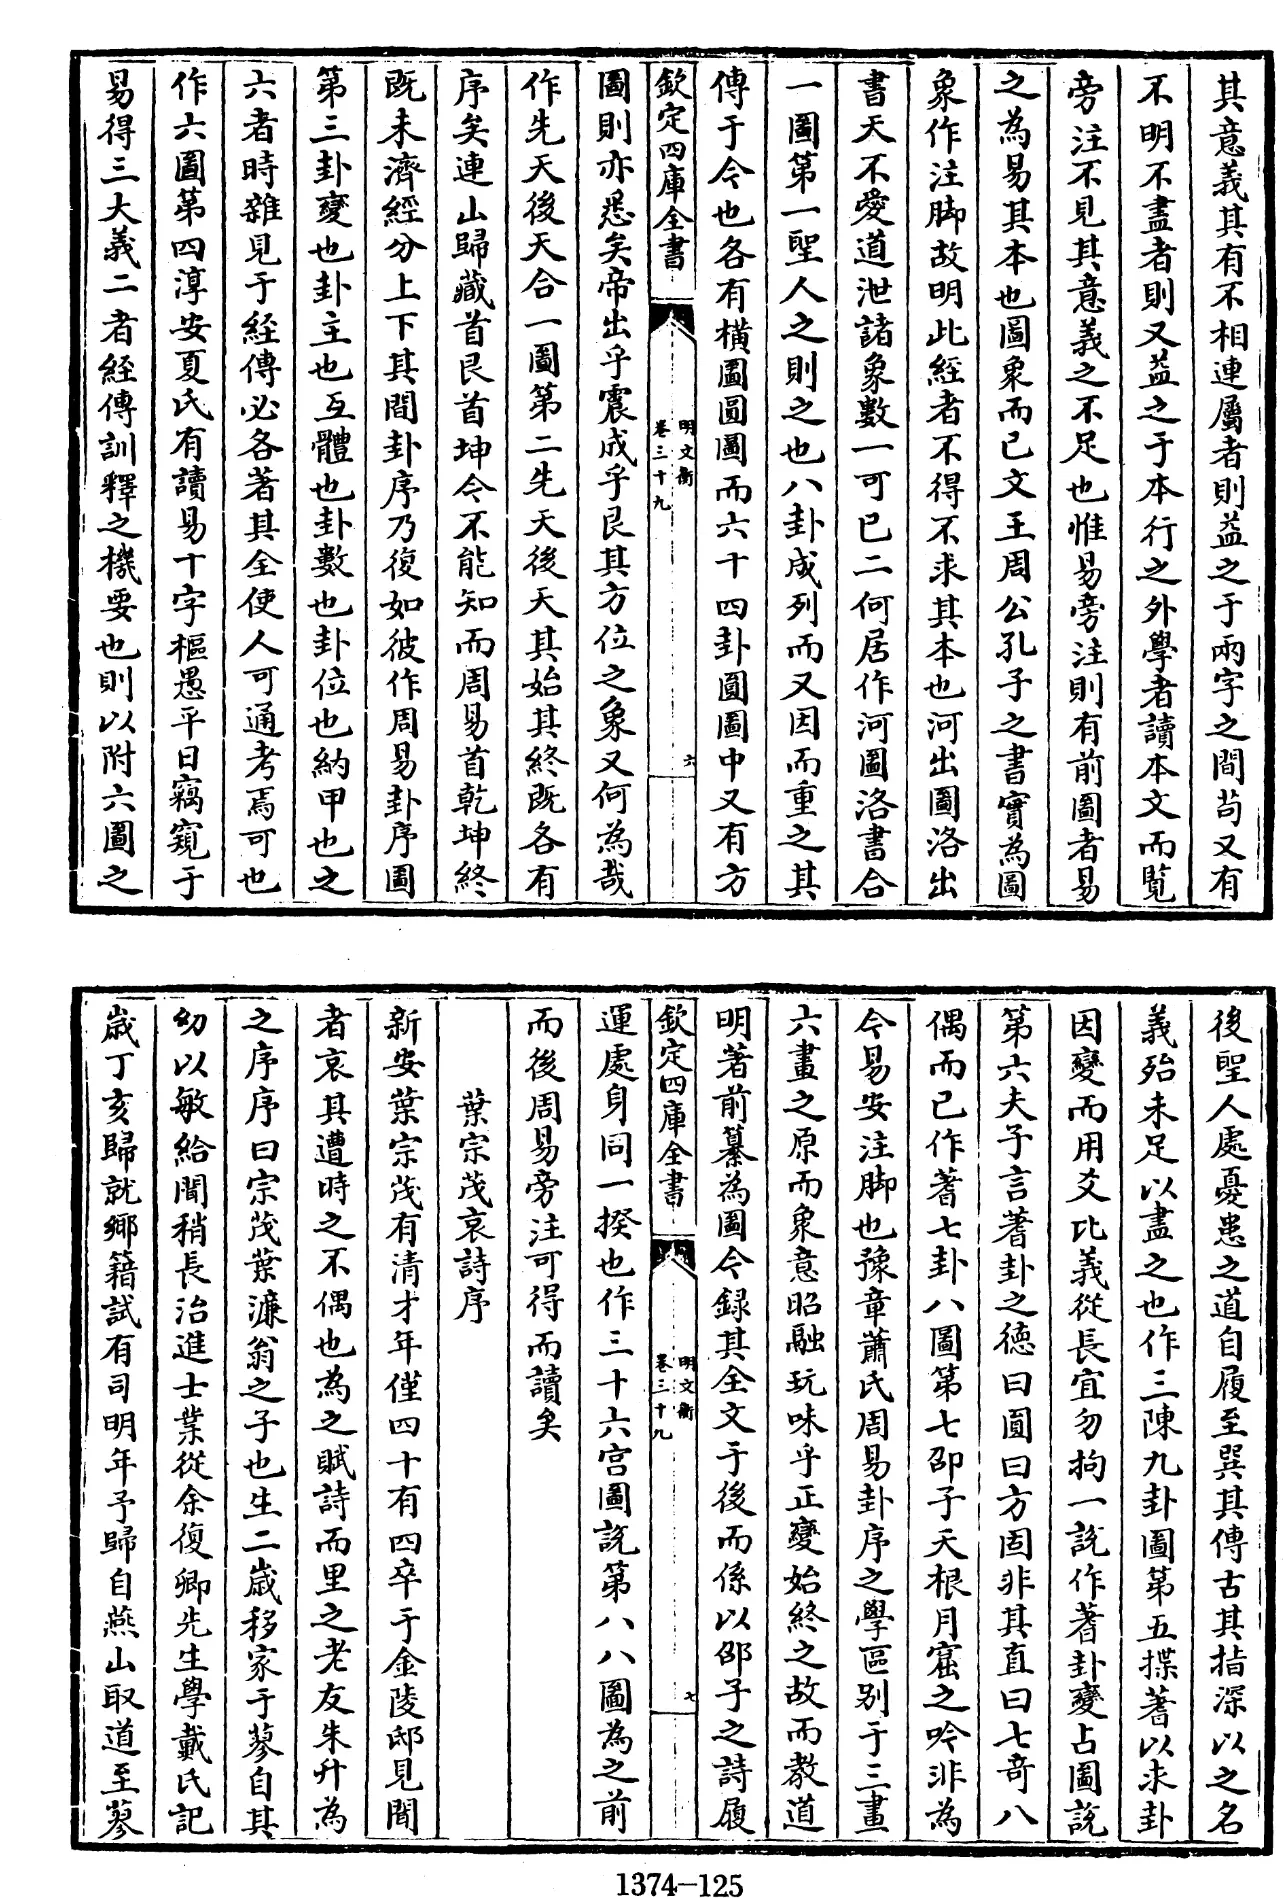 其意義其有不相連屬者則益之于兩字之間茍又有
不明不盡者則又益之于本行之外學者讀本文而覧
旁注不見其意義之不足也惟易旁注則有前圖者易
之為易其本也圖象而已文王周公孔子之書實為圖
象作注脚故明此經者不得不求其本也河出圖洛出
書天不愛道泄諸象數一可已二何居作河圖洛書合
一圖第一聖人之則之也八卦成列而又因而重之其
傳于今也各有橫圖圓圖而六十四卦圓圖中又有方
欽定四庫全書
明文衡
卷三十九
六
圖則亦悉矣帝出乎震成乎艮其方位之象又何為哉
作先天後天合一圖第二先天後天其始其終既各有
序矣連山歸藏首艮首坤今不能知而周易首乾坤終
既未濟經分上下其間卦序乃復如彼作周易卦序圖
第三卦變也卦主也互體也卦數也卦位也納甲也之
六者時雜見于經傳必各著其全使人可通考焉可也
作六圖第四淳安夏氏有讀易十字樞愚平日竊窺于
易得三大義二者經傳訓釋之機要也則以附六圖之
後聖人處憂患之道自履至巽其傳古其指深以之名
義殆未足以盡之也作三陳九卦圖第五揲蓍以求卦
因變而用爻比義從長宜勿拘一説作蓍卦變占圖説
第六夫子言蓍卦之德曰圓曰方固非其直曰七竒八
偶而已作蓍七卦八圖第七邵子天根月窟之吟非為
今易安注脚也豫章蕭氏周易卦序之學區别于三畫
六畫之原而象意昭融玩味乎正變始終之故而教道
明著前纂為圖今録其全文于後而係以邵子之詩履
欽定四庫全書
明文衡
卷三十九
七
運處身同一揆也作三十六宫圖説第八八圖為之前
而後周易旁注可得而讀矣
葉宗茂哀詩序
新安葉宗茂有清才年僅四十有四卒于金陵邸見聞
者哀其遭時之不偶也為之賦詩而里之老友朱升為
之序序曰宗茂葉濂翁之子也生二歲移家于蓼自其
幼以敏給聞稍長治進士業從余復卿先生學戴氏記
歲丁亥歸就鄉籍試有司明年予歸自燕山取道至蓼
1374-125